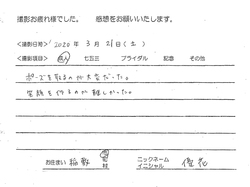 撮影お疲れ様でした。 感想をお願いいたします。
<撮影日時> 2020年 3月 28日(土)
<撮影項目> 成人 七五三 ブライダル 記念 その他
ポーズを取るのが大変だった。
笑顔を作るのが難しかった。
お住まい 稲敷 市 町村 ニックネーム イニシャル 優花